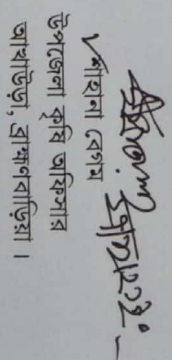 শাহানা বেগম
উপজেলা কৃষি অফিসার
আখাউড়া, ব্রাহ্মণবাড়িয়া ।